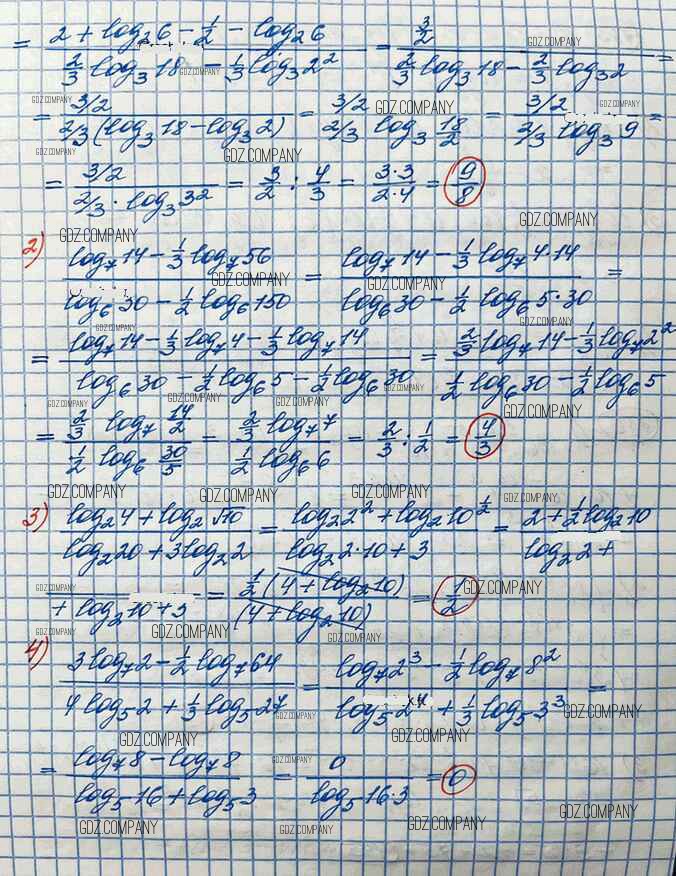 = (2 + log₂6 - 1/2 - log₂6)/(2/3 log₃18 - 1/3 log₃2²) = (3/2)/(2/3 log₃18 - 2/3 log₃2) =
= (3/2)/(2/3(log₃18 - log₃2)) = (3/2)/(2/3 log₃ 18/2) = (3/2)/(2/3 log₃9) =
= (3/2)/(2/3 · log₃3²) = 3/2 : 4/3 = (3·3)/(2·4) = 9/8
2) (log₇14 - 1/3 log₇56)/(log₆30 - 1/2 log₆150) = (log₇14 - 1/3 log₇4·14)/(log₆30 - 1/2 log₆5·30) =
= (log₇14 - 1/3 log₇4 - 1/3 log₇14)/(log₆30 - 1/2 log₆5 - 1/2 log₆30) = (2/3 log₇14 - 1/3 log₇2²)/(1/2 log₆30 - 1/2 log₆5)
= (2/3 log₇ 14/2)/(1/2 log₆ 30/5) = (2/3 log₇7)/(1/2 log₆6) = 2/3 : 1/2 = 4/3
3) (log₂4 + log₂√10)/(log₂20 + 3log₂2) = (log₂2² + log₂10^(1/2))/(log₂2·10 + 3) = (2 + 1/2 log₂10)/(log₂2 +
+ log₂10 + 3) = (1/2(4 + log₂10))/((4 + log₂10)) = 1/2
4) (3log₇2 - 1/2 log₇64)/(4log₅2 + 1/3 log₅27) = (log₇2³ - 1/2 log₇8²)/(log₅2⁴ + 1/3 log₅3³) =
= (log₇8 - log₇8)/(log₅16 + log₅3) = 0/(log₅16·3) = 0
GDZ.COMPANY